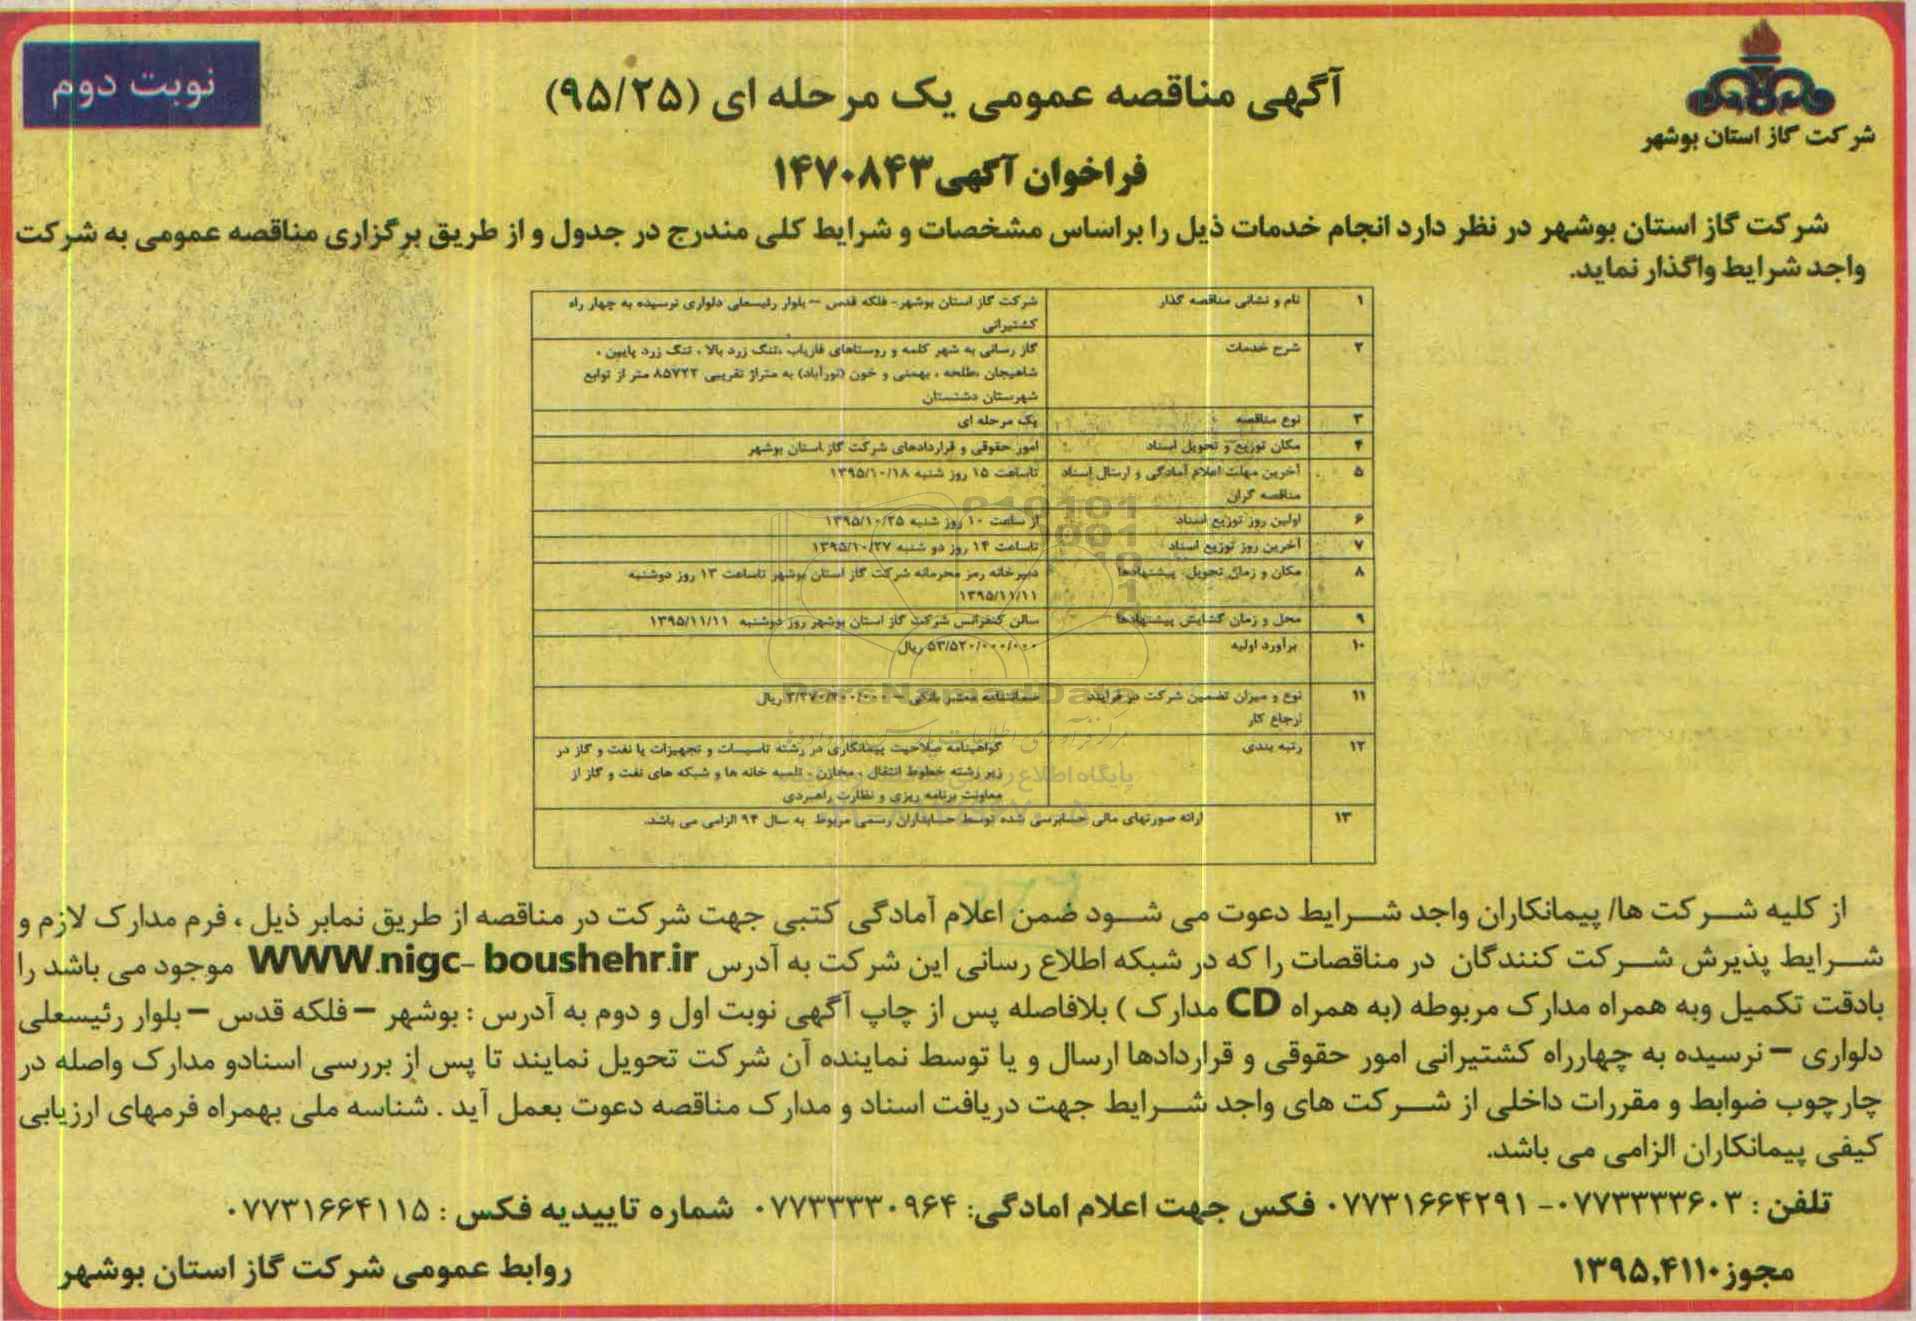 نوبت دوم
شرکت گاز استان بوشهر
آگهی مناقصه عمومی یک مرحله ای (۹۵/۲۵)
فراخوان آگهی۱۴۷۰۸۴۳
شرکت گاز استان بوشهر در نظر دارد انجام خدمات ذیل را براساس مشخصات و شرایط کلی مندرج در جدول و از طریق برگزاری مناقصه عمومی به شرکت
واجد شرایط واگذار نماید.
۱ نام و نشانی مناقصه گذار شرکت گاز استان بوشهر- فلکه قدس – بلوار رئیسعلی دلواری نرسیده به چهار راه
کشتیرانی
۲ شرح خدمات گاز رسانی به شهر کلمه و روستاهای فاریاب ،تنگ زرد بالا ، تنگ زرد پایین ،
شاهیجان ،طلحه ، بهمنی و خون (نورآباد) به متراژ تقریبی ۸۵۷۲۲ متر از توابع
شهرستان دشتستان
۳ نوع مناقصه یک مرحله ای
۴ مکان توزیع و تحویل اسناد امور حقوقی و قراردادهای شرکت گاز استان بوشهر
۵ آخرین مهلت اعلام آمادگی و ارسال اسناد تاساعت ۱۵ روز شنبه ۱۳۹۵/۱۰/۱۸
مناقصه گران
۶ اولین روز توزیع اسناد از ساعت ۱۰ روز شنبه ۱۳۹۵/۱۰/۲۵
۷ آخرین روز توزیع اسناد تاساعت ۱۴ روز دو شنبه ۱۳۹۵/۱۰/۲۷
۸ مکان و زمان تحویل پیشنهادها دبیرخانه رمز محرمانه شرکت گاز استان بوشهر تاساعت ۱۳ روز دوشنبه
۱۳۹۵/۱۱/۱۱
۹ محل و زمان گشایش پیشنهادها سالن کنفرانس شرکت گاز استان بوشهر روز دوشنبه ۱۳۹۵/۱۱/۱۱
۱۰ برآورد اولیه ۵۳/۵۲۰/۰۰۰/۰۰۰ ریال
۱۱ نوع و میزان تضمین شرکت در فرایند ضمانتنامه معتبر بانکی – ریال
ارجاع کار
۱۲ رتبه بندی گواهینامه صلاحیت پیمانکاری در رشته تاسیسات و تجهیزات یا نفت و گاز در
زیر رشته خطوط انتقال ، مخازن ، تلمبه خانه ها و شبکه های نفت و گاز از
معاونت برنامه ریزی و نظارت راهبردی
۱۳ ارائه صورتهای مالی حسابرسی شده توسط حسابداران رسمی مربوط به سال ۹۴ الزامی می باشد.
از کلیه شرکت ها/ پیمانکاران واجد شرایط دعوت می شود ضمن اعلام آمادگی کتبی جهت شرکت در مناقصه از طریق نمابر ذیل ، فرم مدارک لازم و
شرایط پذیرش شرکت کنندگان در مناقصات را که در شبکه اطلاع رسانی این شرکت به آدرس WWW.nigc- boushehr.ir موجود می باشد را
بادقت تکمیل وبه همراه مدارک مربوطه (به همراه CD مدارک ) بلافاصله پس از چاپ آگهی نوبت اول و دوم به آدرس : بوشهر – فلکه قدس – بلوار رئیسعلی
دلواری – نرسیده به چهارراه کشتیرانی امور حقوقی و قراردادها ارسال و یا توسط نماینده آن شرکت تحویل نمایند تا پس از بررسی اسنادو مدارک واصله در
چارچوب ضوابط و مقررات داخلی از شرکت های واجد شرایط جهت دریافت اسناد و مدارک مناقصه دعوت بعمل آید . شناسه ملی بهمراه فرمهای ارزیابی
کیفی پیمانکاران الزامی می باشد.
تلفن : ۰۷۷۳۳۳۳۶۰۳- ۰۷۷۳۱۶۶۴۲۹۱ فکس جهت اعلام امادگی: ۰۷۷۳۳۳۳۰۹۶۴ شماره تاییدیه فکس : ۰۷۷۳۱۶۶۴۱۱۵
مجوز۱۳۹۵.۴۱۱۰
روابط عمومی شرکت گاز استان بوشهر